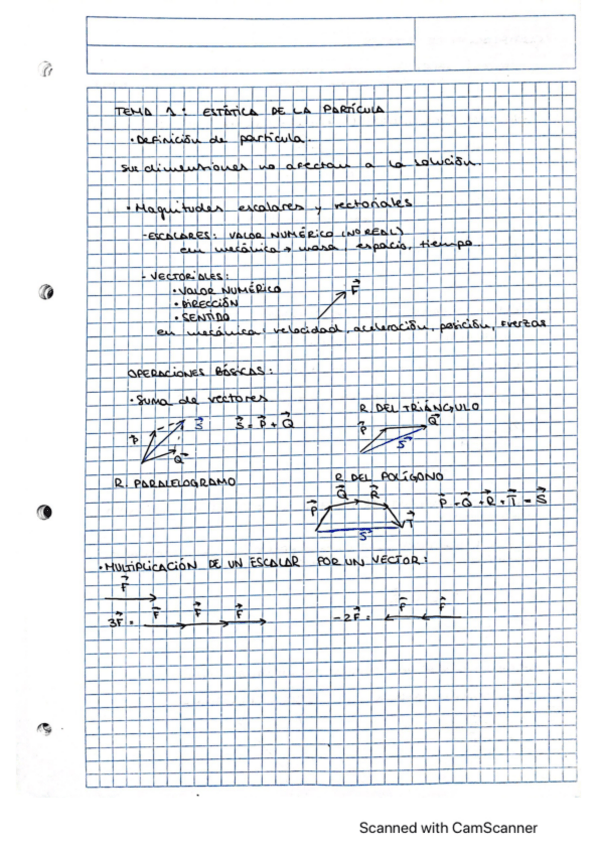 TEMA 1: ESTÁTICA DE LA PARTÍCULA
· Definición de partícula.
Sus dimensiones no afectan a la solución.
· Magnitudes escalares y vectoriales
- ESCALARES: VALOR NUMÉRICO (Nº REAL)
en mecánica → masa, espacio, tiempo.
- VECTORIALES:
· VALOR NUMÉRICO
· DIRECCIÓN
· SENTIDO
F⃗
en mecánica: velocidad, aceleración, posición, fuerzas
OPERACIONES BÁSICAS:
· Suma de vectores
R. DEL TRIÁNGULO
P⃗ S⃗ Q⃗ S⃗ = P⃗ + Q⃗
P⃗ Q⃗ S⃗
R. PARALELOGRAMO
R. DEL POLÍGONO
P⃗ Q⃗ R⃗ T⃗ S⃗ P⃗ + Q⃗ + R⃗ + T⃗ = S⃗
· MULTIPLICACIÓN DE UN ESCALAR POR UN VECTOR:
F⃗
3F⃗ = F⃗ F⃗ F⃗
-2F⃗ = F⃗ F⃗
Scanned with CamScanner